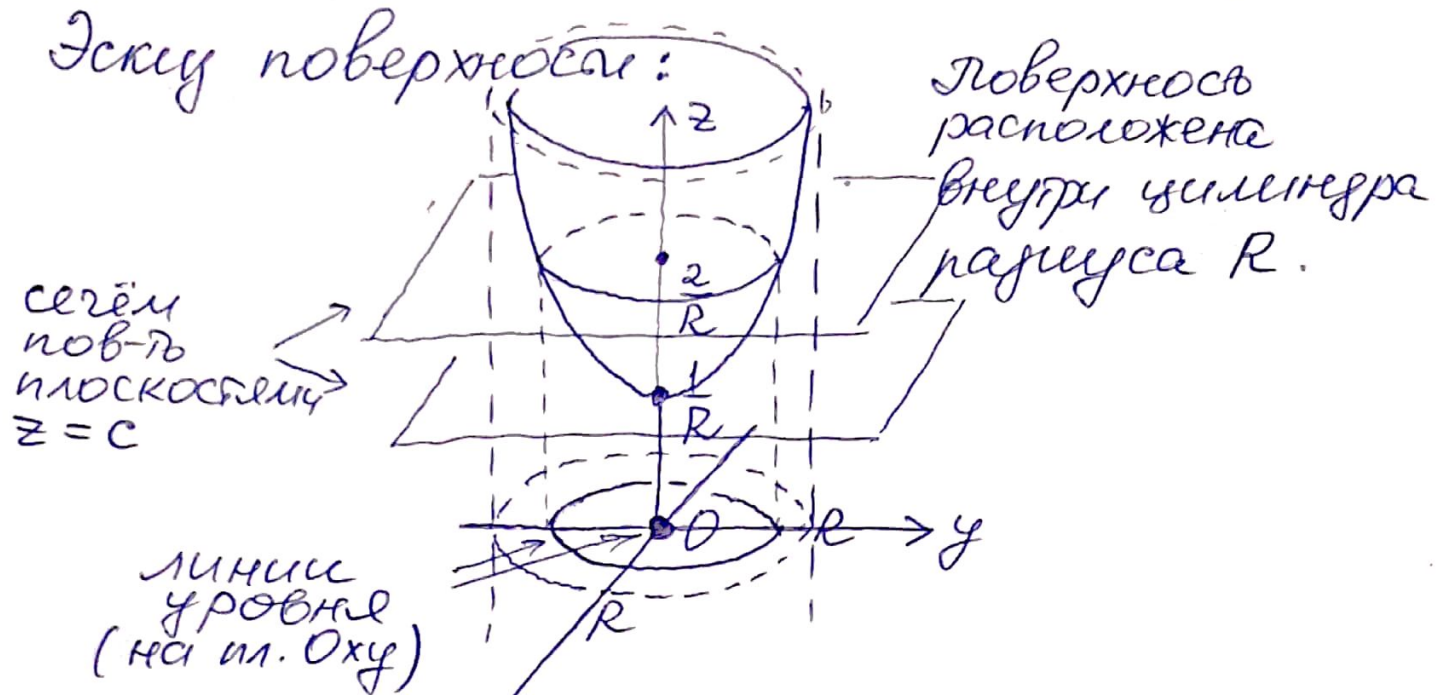 Эскиз поверхности:
Поверхность
расположена
внутри цилиндра
радиуса R.
z
2
R
1
R
сечём
пов-ть
плоскостями
z = c
O
R
y
R
линии
уровня
(на пл. Oxy)